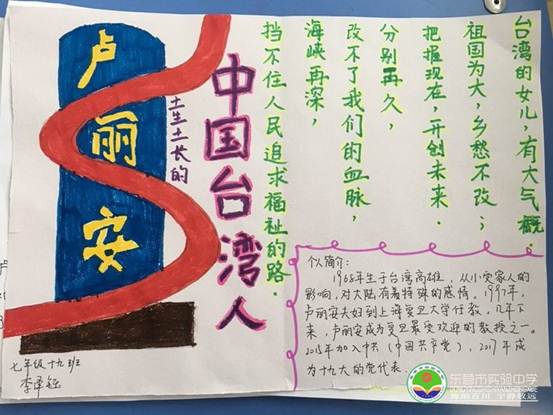 台湾的女儿，有大气概．
祖国为大，乡愁不改；
把握现在，开创未来．
分别再久，
改不了我们的血脉，
海峡再深，
挡不住人民追求福祉的路．
中国台湾人
土生土长的
卢丽安
个人简介：
1968年生于台湾高雄，从小受家人的
影响，对大陆有着特殊的感情。1997年，
卢丽安夫妇到上海复旦大学任教，几年下
来，卢丽安成为复旦最受欢迎的教授之一。
2015年加入中共（中国共产党），2017年成
为十九大的党代表．
七年级十九班
东营市实验中学